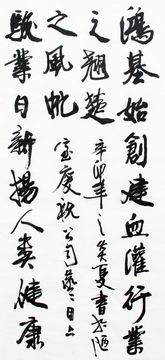 鴻基始創建血灌行業
之翹楚
之風帆
駿業日新揚人类健康
辛卯年之炎夏書於陋
室慶祝公司蒸蒸日上